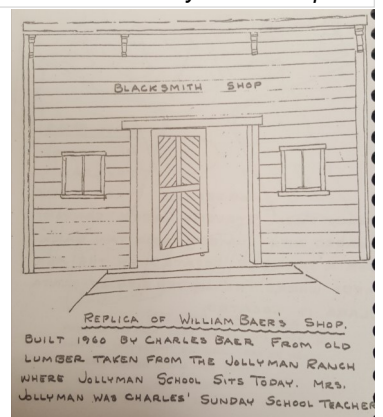 BLACKSMITH SHOP
REPLICA OF WILLIAM BAER'S SHOP.
BUILT 1960 BY CHARLES BAER FROM OLD
LUMBER TAKEN FROM THE JOLLYMAN RANCH
WHERE JOLLYMAN SCHOOL SITS TODAY. MRS.
JOLLYMAN WAS CHARLES' SUNDAY SCHOOL TEACHER